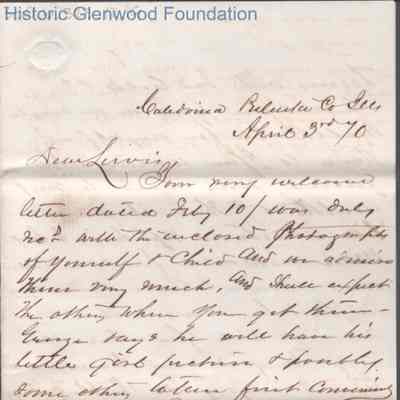 Historic Glenwood Foundation
Caledonia Co Ills
April 3rd 70
Dear
Your very welcome
letter dated Feby 10/ was duly
recd with the inclosed Photographs
of Yourself & Child And we admire
them very much, And Shall expect
the others when You get them-
George says he will have his
little girl picture & possibly
some others taken first